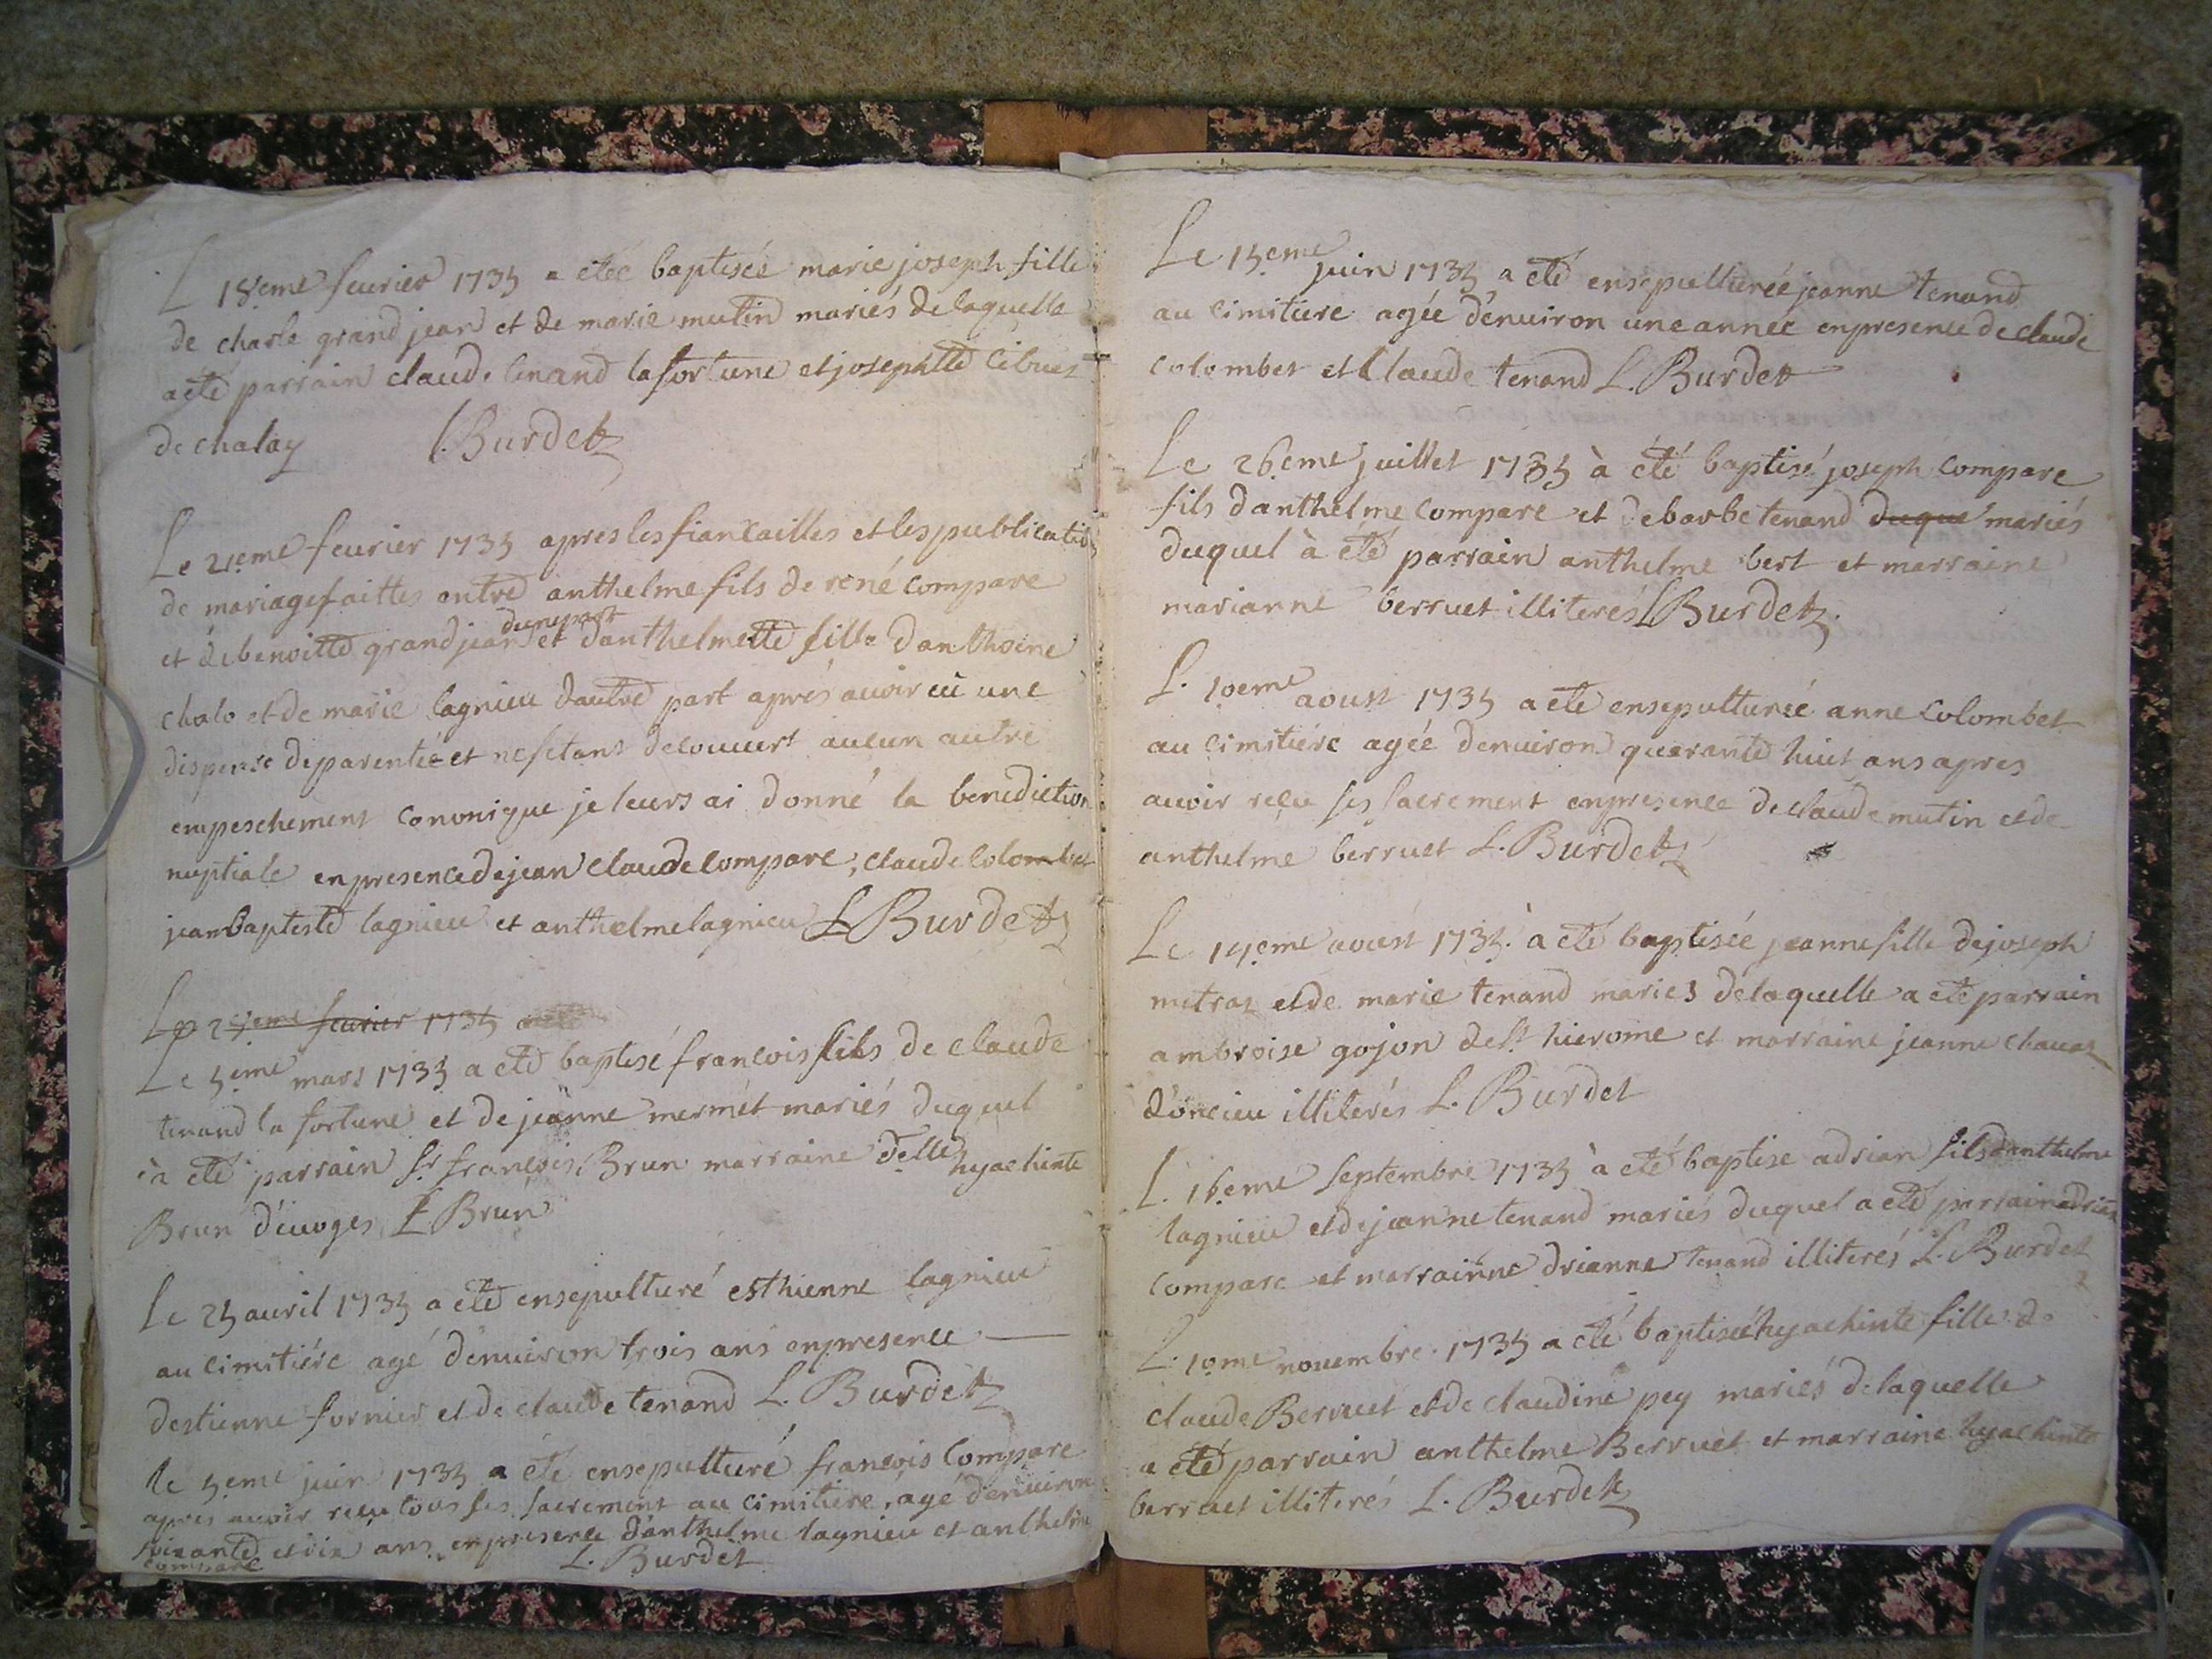 L 18eme feurier 1735 a etéé baptiséé marie joseph fille
de charle grand jean et de marie mutin mariés de laquelle
a eté parrain claude tenand la fortune et josephtte
de chalay L. Burdet
Le 21eme feurier 1735 apres les fiancailles et les publicatio
de mariage faittes entre anthelme fils de rené compare
et de benoitte grand jean dunepart et danthelmette fille danthoine
chalo et de marie lagnieu dautre part aprés auoir eü une
dispense de parentéé et ne setant decouuert aucun autre
empeschement canonique je leurs ai donné la benediction
nuptiale en presence de jean claude compare, claude colombet
jean baptiste lagnieu et anthelme lagnieu L Burdet
Le 27eme feurier 1735
Le 5eme mars 1735 a eté baptisé francois fils de claude
tenand la fortune et de jeanne mermét mariés duquel
à eté parrain sr francois Brun marraine delle hyachinte
Brun d'éuoges F Brun
le 25 auril 1735 a eté ensepulturé esthienne lagnieu
au cimitiére agé denuiron trois ans en presence
destienne fornier et de claude tenand L. Burdet
le 5eme juin 1735 a éte ensepulturé francois Compare
apres auoir recu tous ses sacrement au cimitiere, agé denuiron
soixante et dix ans en presence d'anthelme lagnieu et anthelme
compare L. Burdet
Le 15eme juin 1735 a eté ensepulturéé jeanne tenand
au cimitiere agéé d'enuiron une année en presence de claude
colombet et Claude tenand L. Burdet
Le 26eme juillet 1735 à été baptisé joseph compare
fils danthelme compare et de barbe tenand duque mariés
duquel à été parrain anthelme bert et marraine
marianne berruet illiterés L Burdet.
L. 10eme aoust 1735 a eté ensepulturéé anne colombet
au cimitiére agéé denuiron quarante huit ans apres
auoir recu ses sacrement en presence de claude mutin et de
anthelme berruet L. Burdet
Le 14eme aoust 1735. à eté baptiséé jeanne fille de joseph
mitraz et de marie tenand mariés de laquelle a eté parrain
ambroise gojon de st hierome et marraine jeanne chauaz
d'oncieu illiterés L. Burdet
L. 16eme septembre 1735 à eté baptise adrian fils danthelme
lagnieu et de jeanne tenand mariés duquel a eté parrain adrian
compare et marrainne drianne tenand illiterés L. Burdet
L. 10me nouembre 1735 a eté baptiséé hyachinte fille de
claude Berruet et de claudine pey mariés de laquelle
a eté parrain anthelme Berruet et marraine hyachinte
berruet illiterés L. Burdet